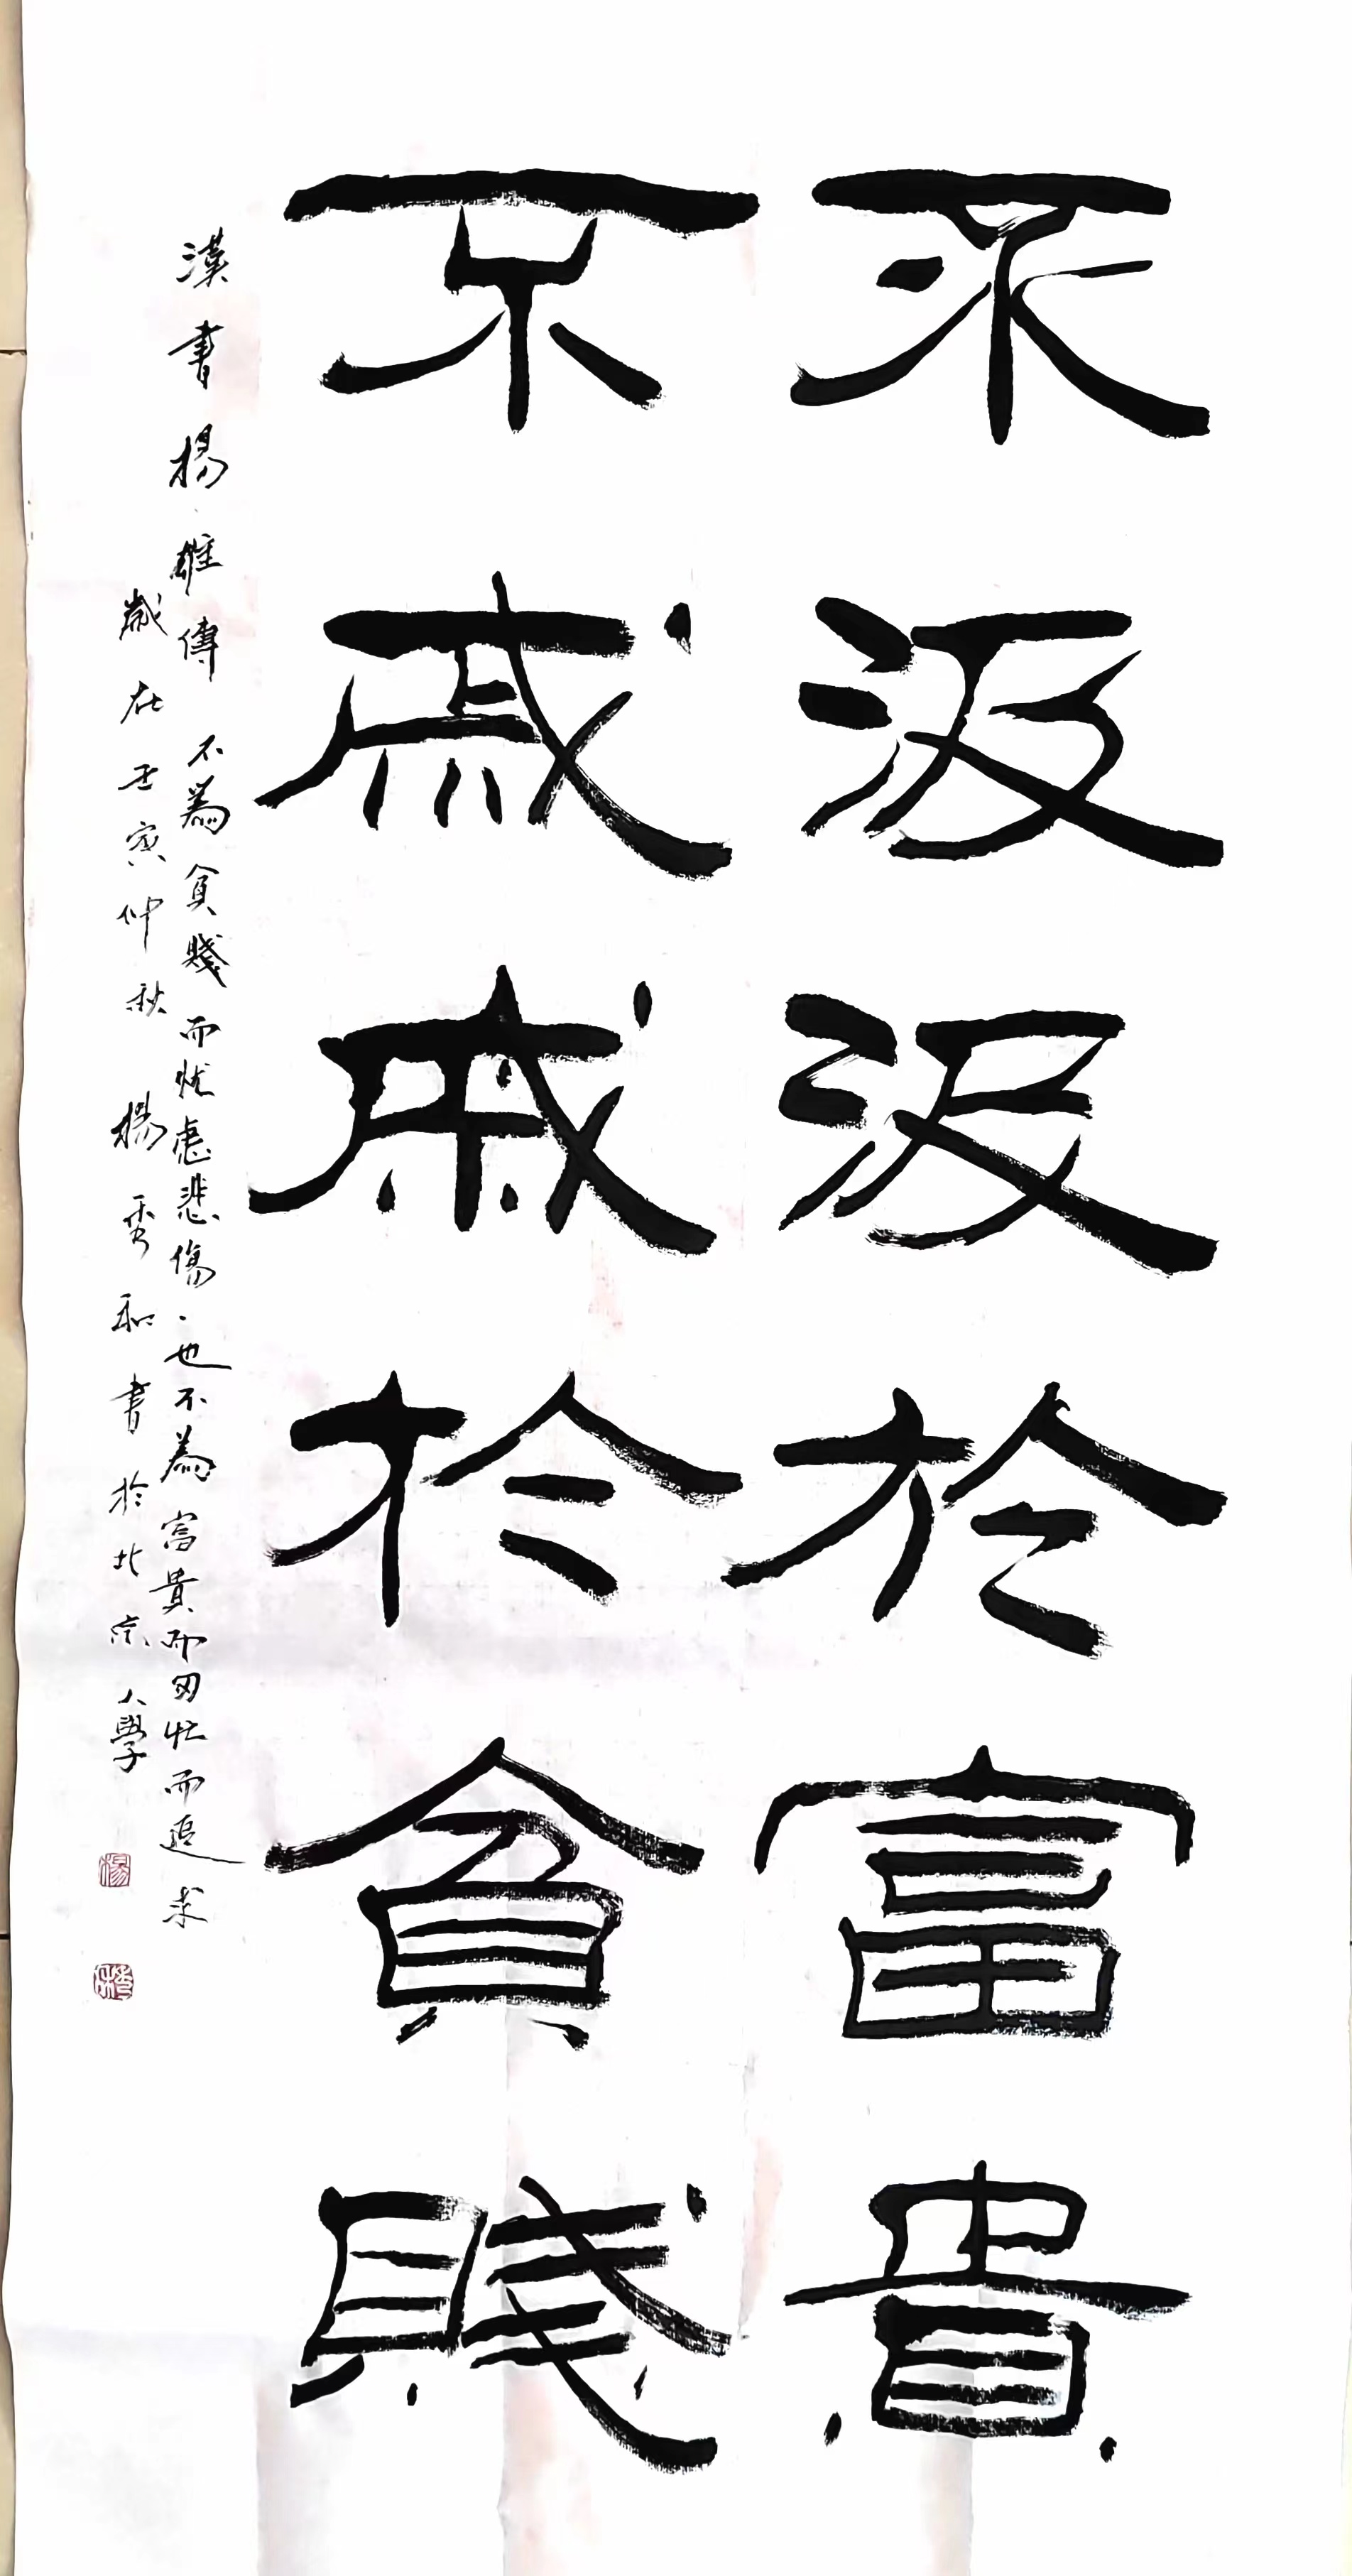 不汲汲於富貴
不戚戚於貧賤
漢書楊雄傳 不為貧賤而忧慮悲傷、也不為富貴而匆忙而追求
歲在壬寅仲秋 楊秀和書於北京大學
楊